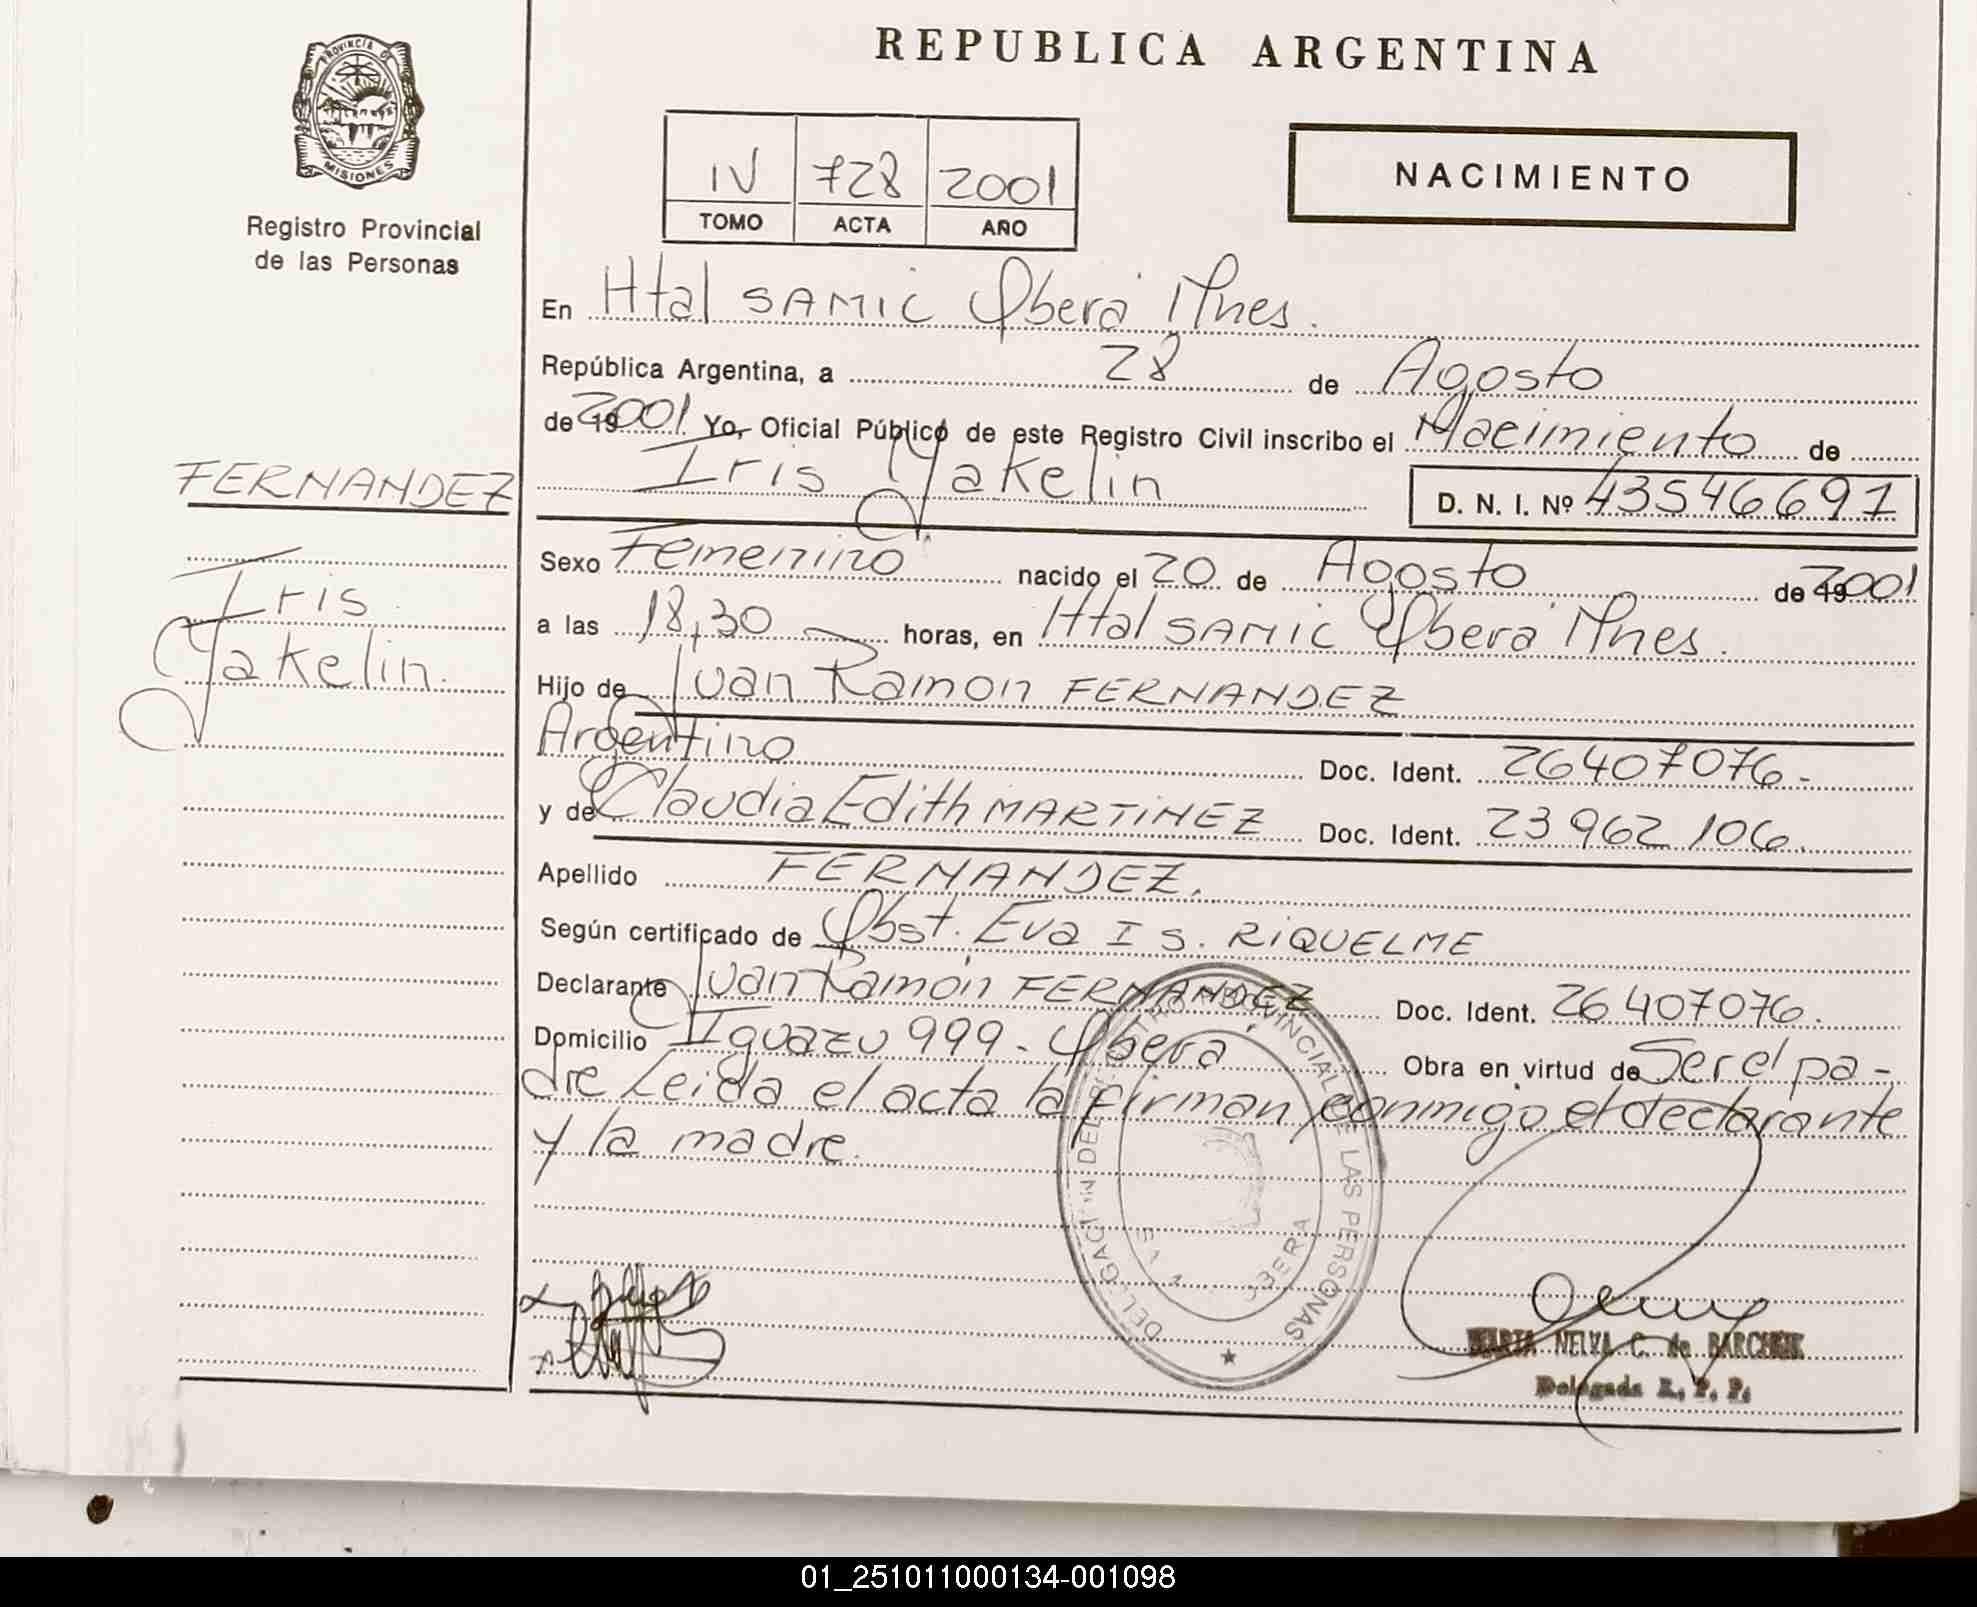 REPUBLICA ARGENTINA
PROVINCIA DE
MISIONES
Registro Provincial
de las Personas
IV 728 2001
TOMO ACTA AÑO
NACIMIENTO
En Htal SAMIC Oberá Mnes.
República Argentina, a 28 de Agosto
de 19 2001 Yo, Oficial Público de este Registro Civil inscribo el Nacimiento de
Iris Yakelin D. N. I. Nº 43546691
FERNANDEZ
Iris
Yakelin.
Sexo Femenino nacido el 20 de Agosto de 19 2001
a las 18,30 horas, en Htal SAMIC Oberá Mnes.
Hijo de Juan Ramon FERNANDEZ
Argentino Doc. Ident. 26407076.-
y de Claudia Edith MARTINEZ Doc. Ident. 23 962 106.
Apellido FERNANDEZ.
Según certificado de Obst. Eva I S. RIQUELME
Declarante Juan Ramón FERNANDEZ Doc. Ident. 26 407076.
Domicilio Iguazu 999 - Oberá Obra en virtud de Ser el pa-
dre Leida el acta la firman conmigo el declarante
y la madre.
REGISTRO PROVINCIAL DE LAS PERSONAS
OBERA
NELVA C. de
Delegada R. P. P.
01_251011000134-001098